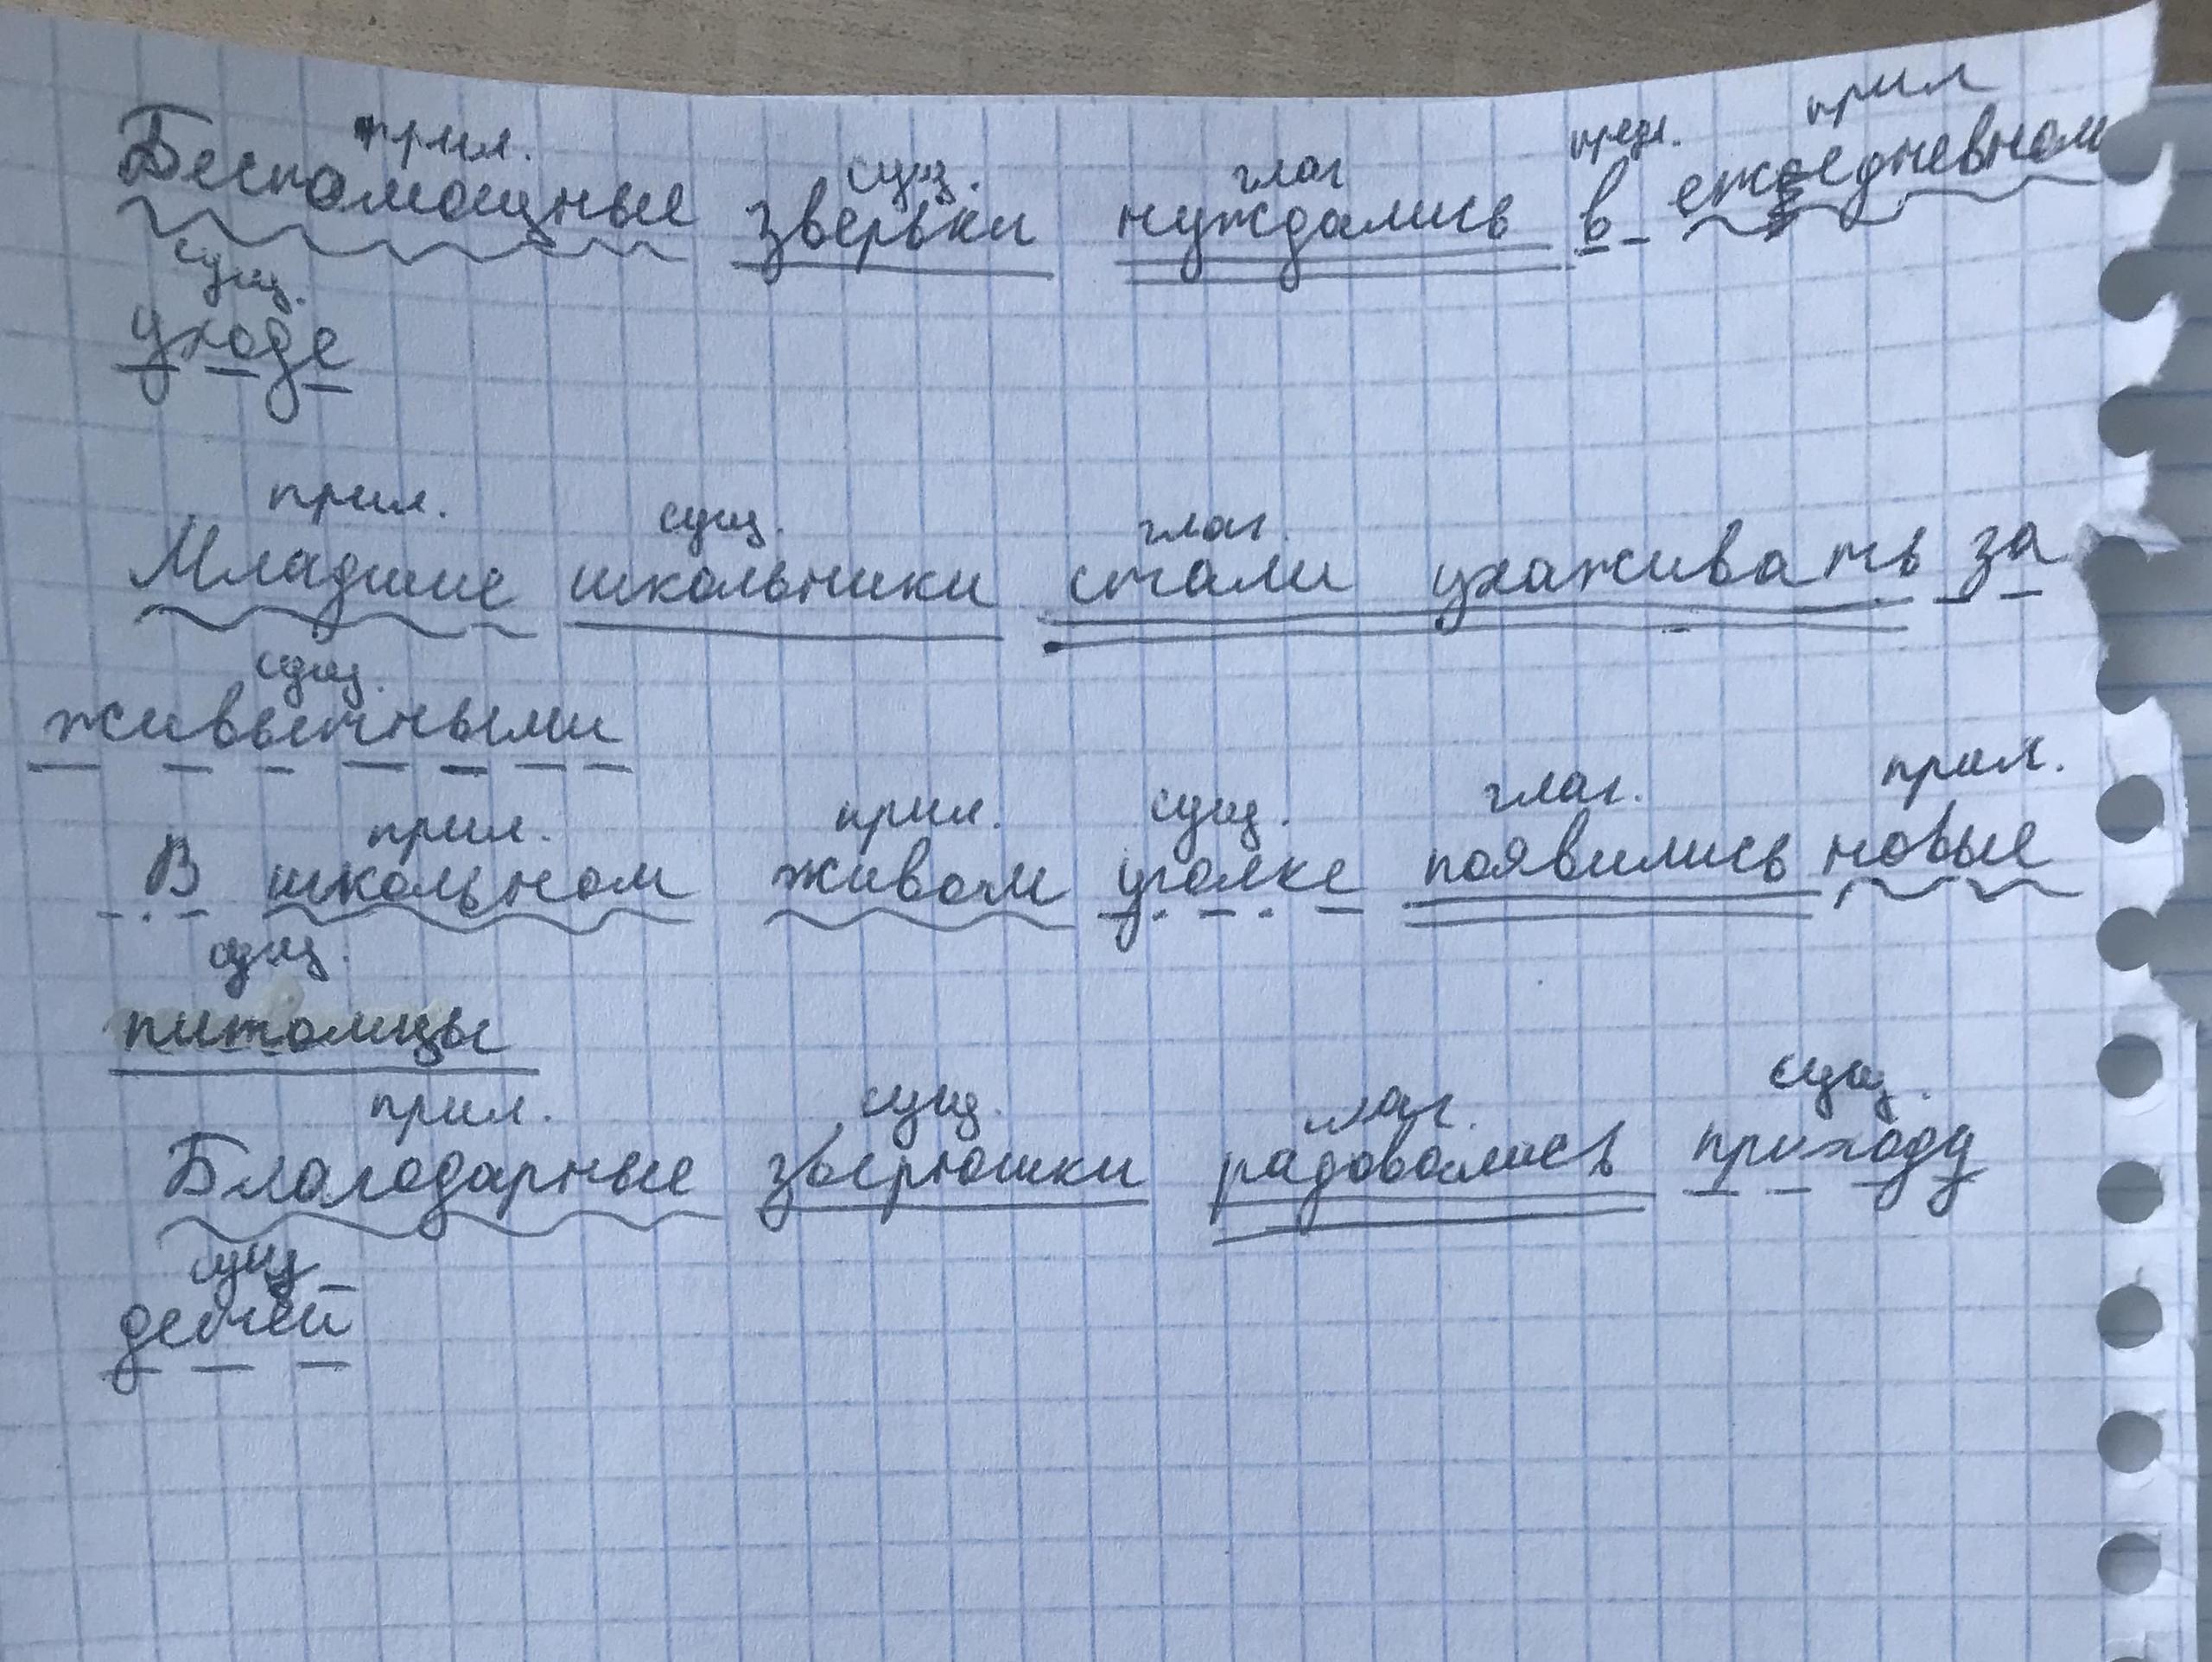 прил. сущ. глаг предл. прил
Беспомощные зверьки нуждались в ежедневном
сущ.
уходе
прил. сущ. глаг.
Младшие школьники стали ухаживать за
сущ.
живытными
прил. прил. сущ. глаг. прил.
В школьном живом уголке появились новые
сущ.
питомцы
прил. сущ. глаг. сущ.
Благодарные зверюшки радовались приходу
сущ
детей